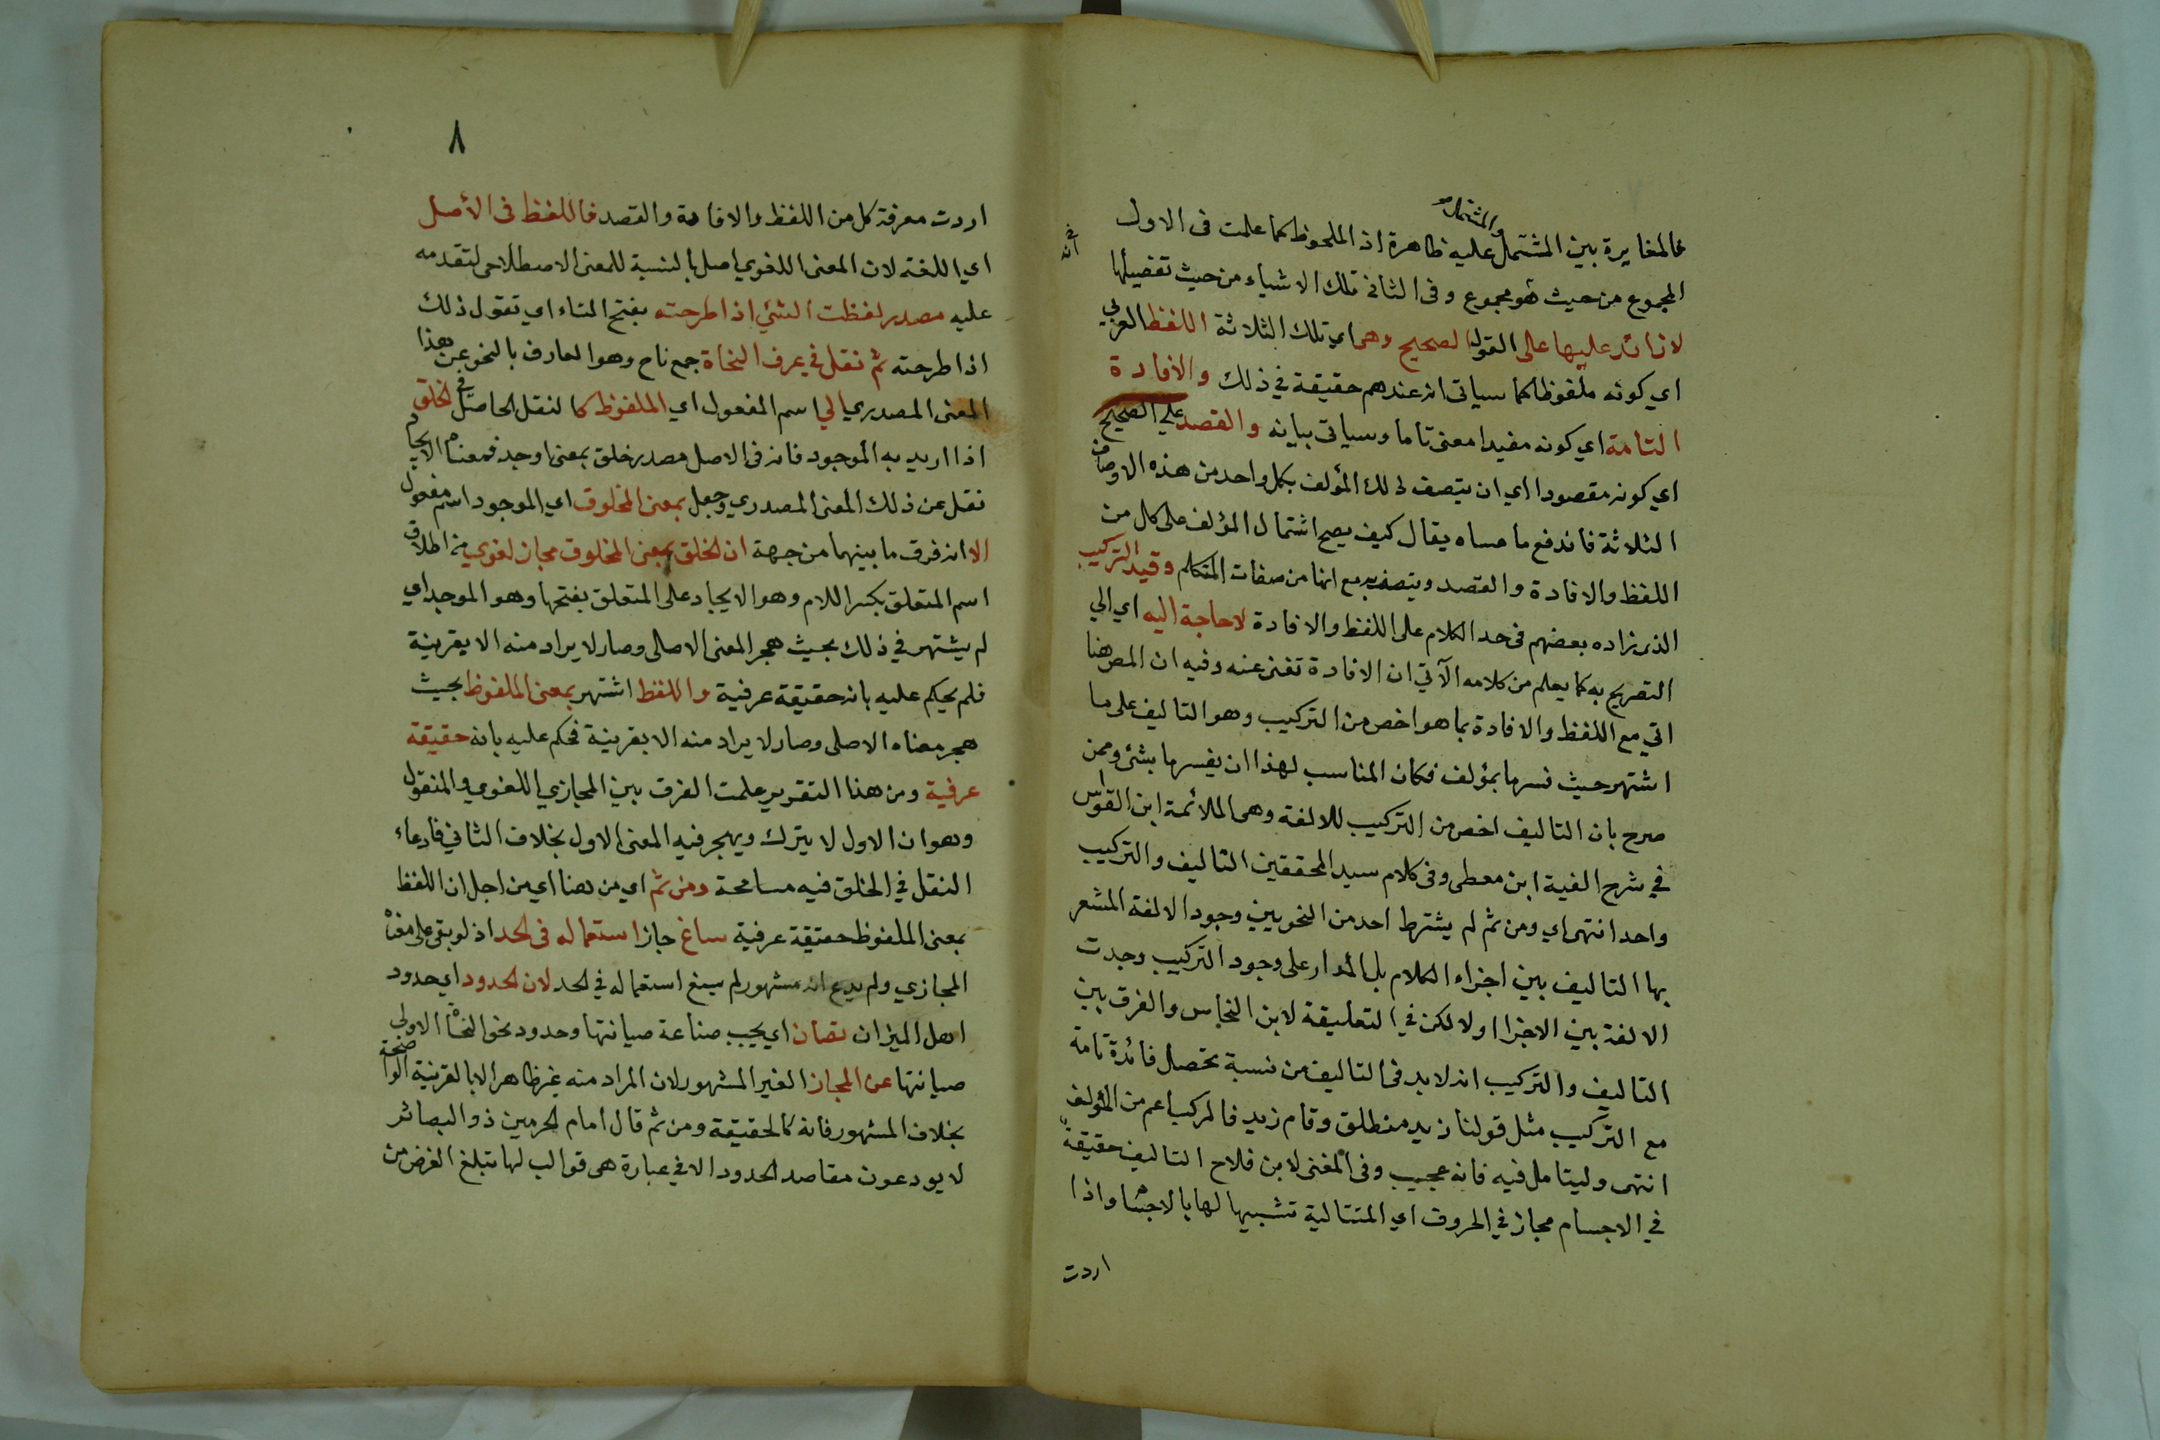 والمشتمل
فالمغايرة بين المشتمل عليه ظاهرة اذ الملحوظ كما علمت فى الاول
المجموع من حيث هو مجموع وفى الثانى تلك الاشياء من حيث تفصيلها
لا زائد عليها على القول الصحيح وهى اي تلك الثلاثة اللفظ العربي
اي كونه ملفوظا كما سياتى انه عندهم حقيقة في ذلك والافادة
التامة اي كونه مفيدا معنى تاما وسياتى بيانه والقصد على الصحيح
اي كونه مقصودا اي ان يتصف ذلك المؤلف بكل واحد من هذه الاوصاف
الثلاثة فاندفع ما عساه يقال كيف يصح اشتمال المؤلف على كل من
اللفظ والافادة والقصد ويتصف به مع انها من صفات المتكلم وقيد التركيب
الذى زاده بعضهم فى حد الكلام على اللفظ والافادة لا حاجة اليه اي الي
التصريح به كما يعلم من كلامه الآتي ان الافادة تغنى عنه وفيه ان المص هنا
اتي مع اللفظ والافادة بما هو اخص من التركيب وهو التاليف على ما
اشتهر حيث فسرها بمؤلف فكان المناسب لهذا ان يفسرها بشئ وممن
صرح بان التاليف اخص من التركيب للالفة وهى الملائمة ابن القواس
في شرح الفية ابن معطى وفى كلام سيد المحققين التاليف والتركيب
واحد انتهى اي ومن ثم لم يشترط احد من النحويين وجود الالفة المشعر
بها التاليف بين اجزاء الكلام بل المدار على وجود التركيب وجدت
الالفة بين الاجزا اولا لكن في التعليقة لابن النحاس والفرق بين
التاليف والتركيب انه لا بد فى التاليف من نسبة تحصل فائدة تامة
مع التركيب مثل قولنا زيد منطلق وقام زيد فالمركب اعم من المؤلف
انتهى وليتامل فيه فانه عجيب وفى المغنى لابن فلاح التاليف حقيقة
في الاجسام مجاز في الحروف اي المتتالية تشبيها لها بالاجسام واذا
اردت
٨
اردت معرفة كل من اللفظ والافادة والقصد فاللفظ فى الأصل
اي اللغة لان المعنى اللغوي اصل بالنسبة للمعنى الاصطلاحى لتقدمه
عليه مصدر لفظت الشئي اذا طرحته بفتح التاء اي تقول ذلك
اذا طرحته ثم نقل في عرف النحاة جمع ناح وهو العارف بالنحو عن هذا
المعنى المصدري الي اسم المفعول اي الملفوظ كالنقل الحاصل في الخلق
اذا اريد به الموجود فانه فى الاصل مصدر خلق بمعنى اوجد فمعناه الايجاد
نقل عن ذلك المعنى المصدري وجعل بمعنى المخلوق اي الموجود اسم مفعول
الا انه فرق ما بينهما من جهة ان الخلق بمعنى المخلوق مجاز لغوي من اطلاق
اسم المتعلق بكسر اللام وهو الايجاد على المتعلق بفتحها وهو الموجد اي
لم يشتهر في ذلك بحيث هجر المعنى الاصلى وصار لا يراد منه الا بقرينة
فلم يحكم عليه بانه حقيقة عرفية واللفظ اشتهر بمعنى الملفوظ بحيث
هجر معناه الاصلى وصار لا يراد منه الا بقرينة فحكم عليه بانه حقيقة
عرفية ومن هذا التقرير علمت الفرق بين المجازي اللغوي والمنقول
وهو ان الاول لا يترك ويهجر فيه المعنى الاول بخلاف الثاني فادعاء
النقل في الخلق فيه مسامحة ومن ثم اي من هنا اي من اجل ان اللفظ
بمعنى الملفوظ حقيقة عرفية ساغ جاز استعماله فى الحد اذ لو بقى على
المجازي ولم يدع انه مشهور لم يسغ استعماله في الحد لان الحدود اي حدود
اهل الميزان تصان اي يجب صناعة صيانتها وحدود نحو النحاة الاولى
صيانتها عن المجاز الغير المشهور لان المراد منه غير ظاهر الا بالقرينة الواضحة
بخلاف المشهور فانه كالحقيقة ومن ثم قال امام الحرمين ذو البصائر
لا يودعون مقاصد الحدود الا في عبارة هى قوالب لها تبلغ الغرض من